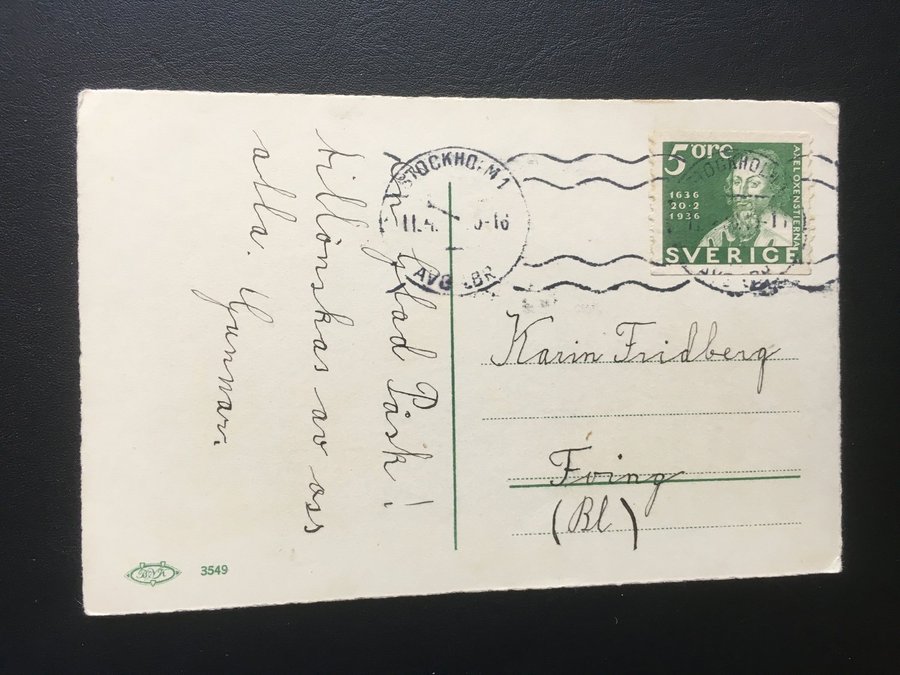 En glad Påsk!
tillönskas av oss
alla. Gunnar.
STOCKHOLM 1
11.4.
-16
AVG
LBR
5 öre
1636
20·2
1936
AXEL OXENSTIERNA
SVERIGE
Karin Fridberg
Fving
(Bl)
BNK
3549